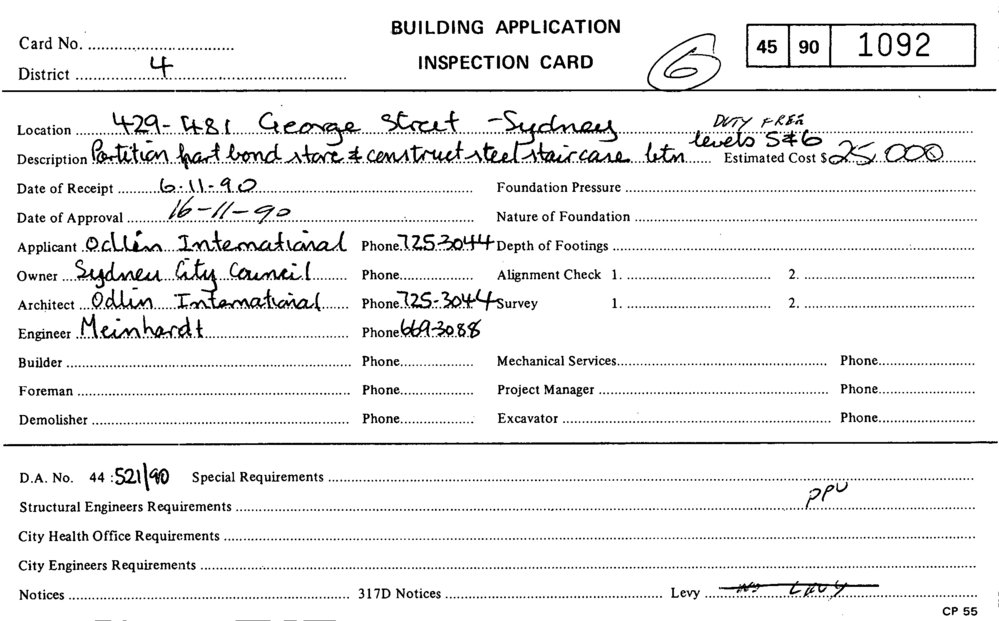 BUILDING APPLICATION
INSPECTION CARD
Card No.
District 4
6
45 90 1092
Location 429-481 George Street - Sydney DUTY FREE
Description Partition part bond store & construct steel staircase btn levels 5&6 Estimated Cost $ 25,000
Date of Receipt 6-11-90 Foundation Pressure
Date of Approval 16-11-90 Nature of Foundation
Applicant Odlin International Phone 725-3044 Depth of Footings
Owner Sydney City Council Phone Alignment Check 1. 2.
Architect Odlin International Phone 725-3044 Survey 1. 2.
Engineer Meinhardt Phone 669-3088
Builder Phone Mechanical Services Phone
Foreman Phone Project Manager Phone
Demolisher Phone Excavator Phone
D.A. No. 44 : 521/90 Special Requirements
Structural Engineers Requirements PPU
City Health Office Requirements
City Engineers Requirements
Notices 317D Notices Levy NO LEVY
CP 55